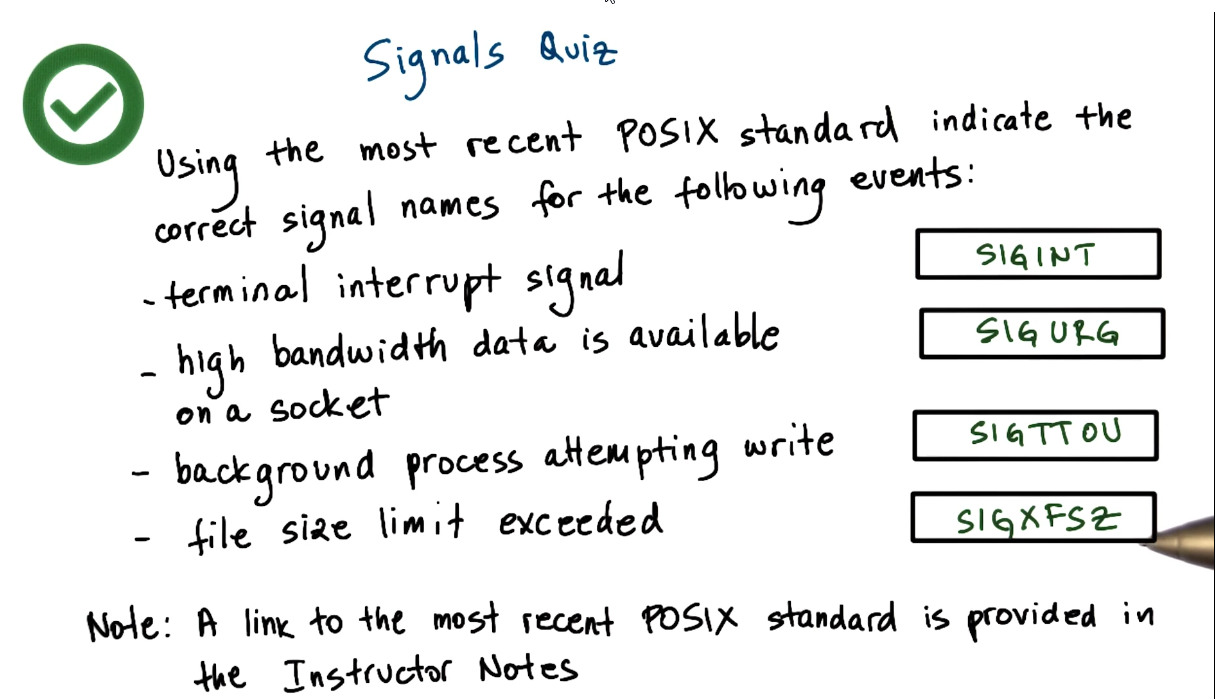 Signals Quiz
Using the most recent POSIX standard indicate the
correct signal names for the following events:
- terminal interrupt signal SIGINT
- high bandwidth data is available SIGURG
on a socket
- background process attempting write SIGTTOU
- file size limit exceeded SIGXFSZ
Note: A link to the most recent POSIX standard is provided in
the Instructor Notes